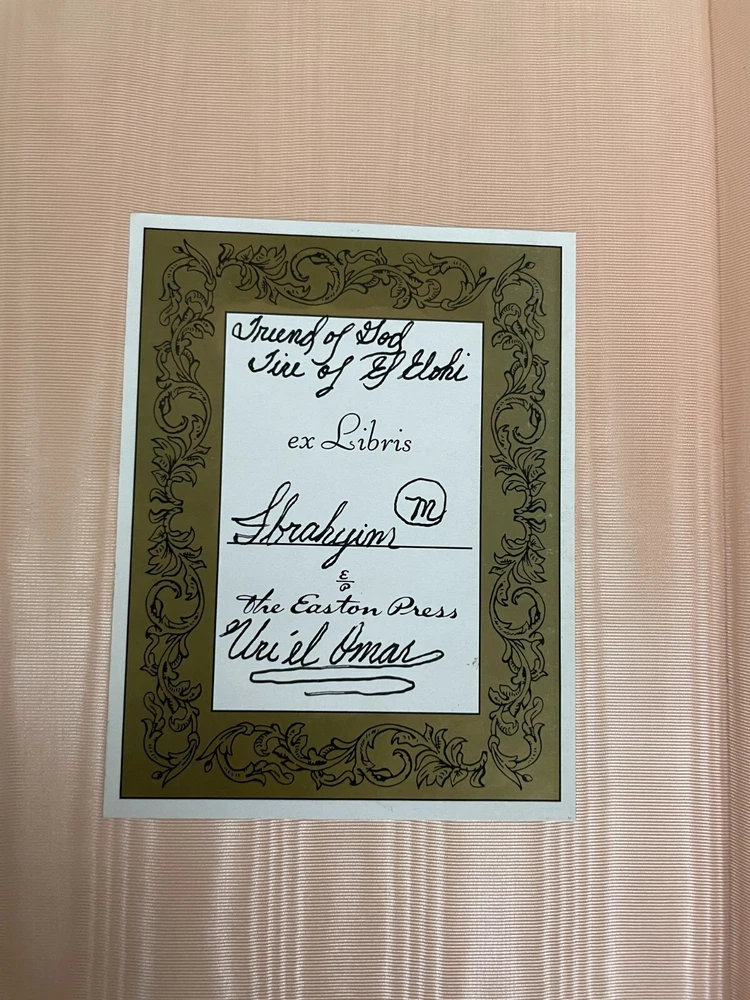 Friend of God
Fire of El Elohi
ex Libris
M
Ibrahyim
E
P
the Easton Press
Uri'el Omar